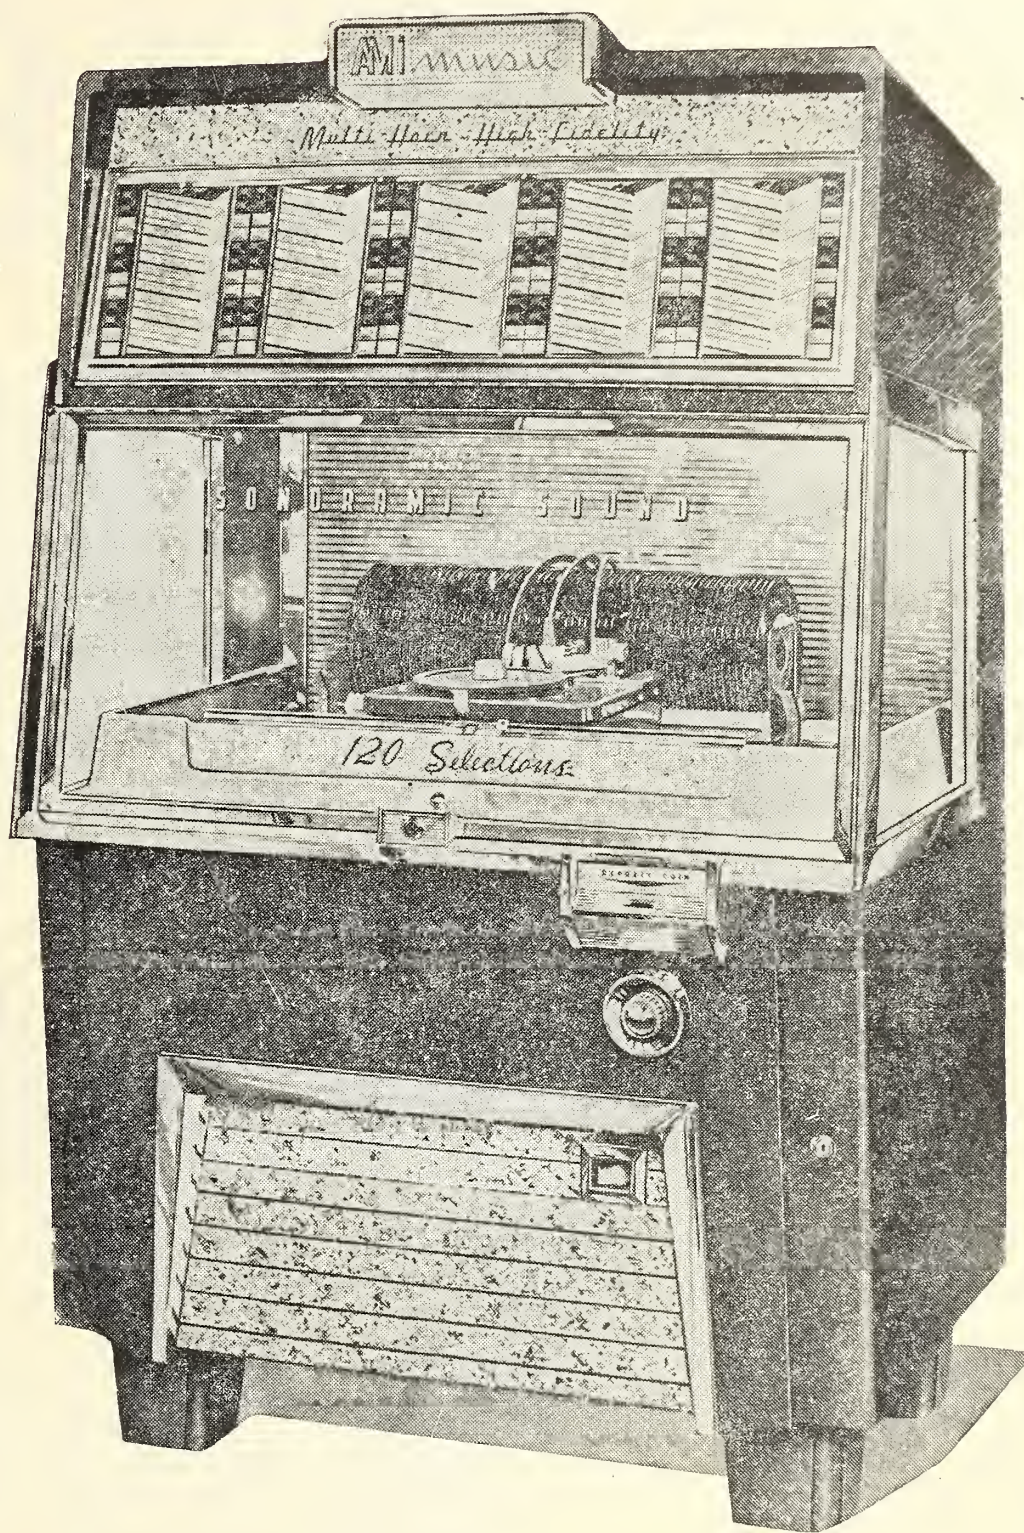 AMi music
Multi-Horn High Fidelity
SONORAMIC SOUND
120 Selections
DEPOSIT COIN